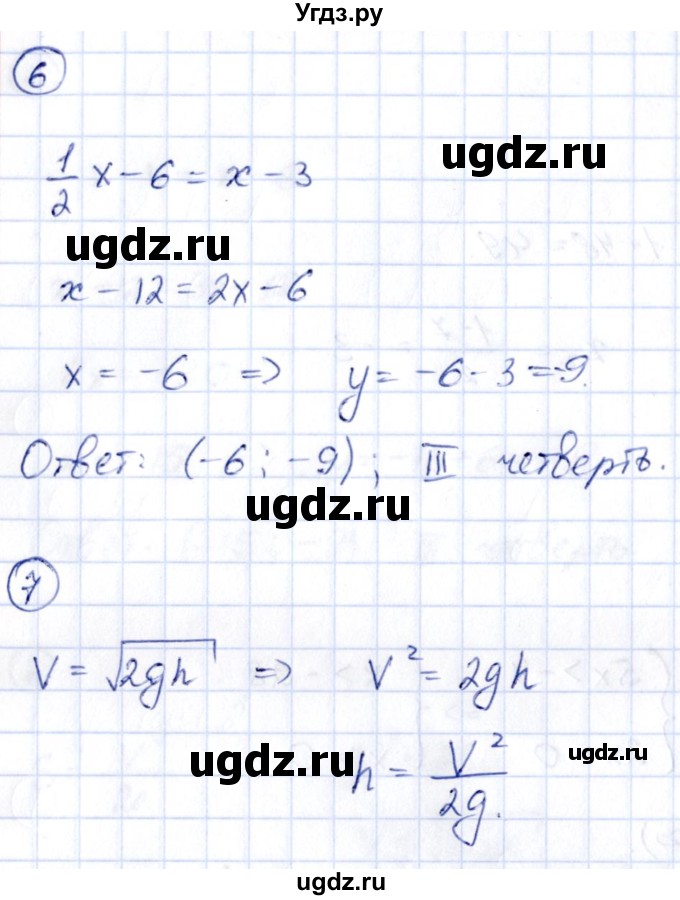 Угдз.ру
6
ugdz.ru
1/2 x - 6 = x - 3
ugdz.ru
x - 12 = 2x - 6
x = -6 => y = -6 - 3 = -9.
ugdz.ru
Ответ: (-6; -9); III четверть.
ugdz.ru
7
V = √2gh => V² = 2gh
ugdz.ru
h = V²/2g.
ugdz.ru
ugdz.ru